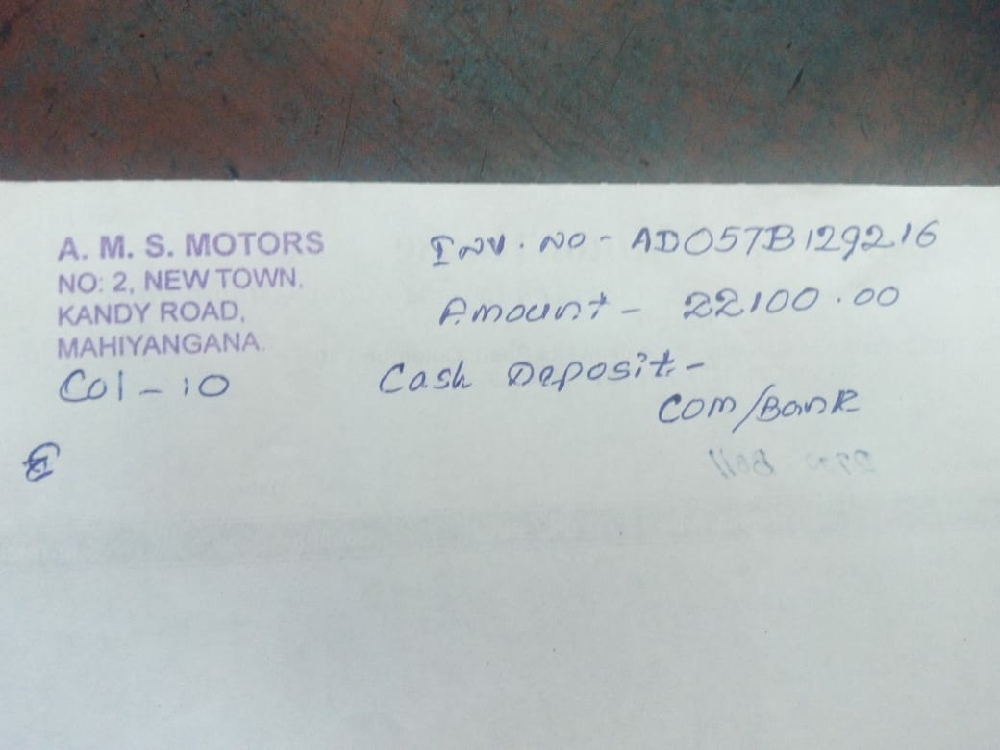 A. M. S. MOTORS
NO: 2, NEW TOWN.
KANDY ROAD,
MAHIYANGANA.
Col - 10
Inv. No - AD057B129216
Amount - 22100.00
Cash Deposit -
Com/Bank